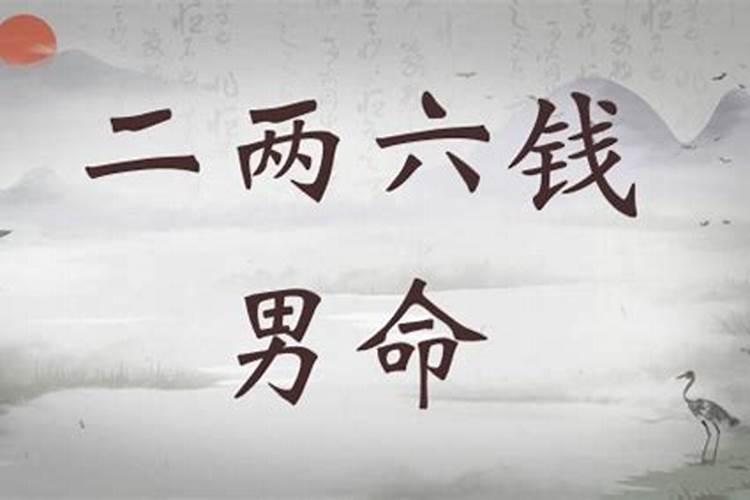 二两六钱
男命